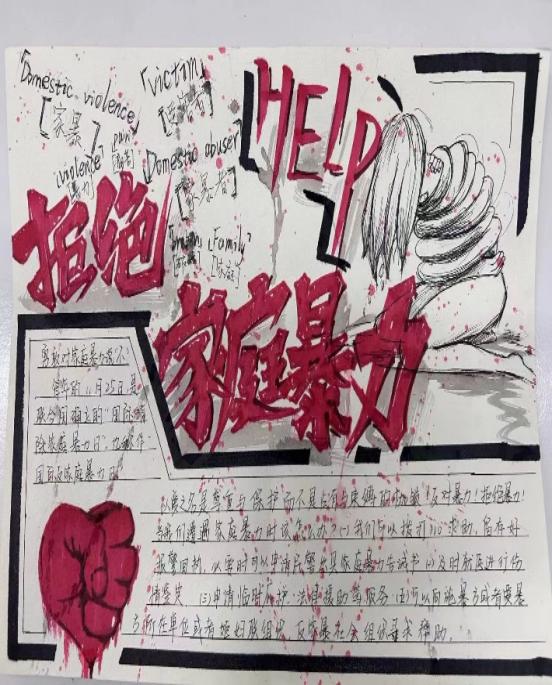 「Domestic violence」
[家暴]
「victim」
[受害者]
「pain」
「violence」
[暴力]
「Domestic abuser」
[家暴者]
「Family」
[家庭]
HELP
拒绝
家庭暴力
勇敢对家庭暴力说"不"
每年的11月25日是
联合国确立的"国际消
除家庭暴力日",也被作
国际反家庭暴力日
以爱之名是尊重与保护而不是占有与束缚的枷锁!反对暴力!拒绝暴力!
当我们遭遇家庭暴力时该怎么办?(1)我们可以拨打110求助,留存好
报警回执,必要时可以申请民警出具家庭暴力告诫书(2)及时就医进行伤
情鉴定 (3)申请临时庇护、法律援助等服务 (4)可以向施暴方或者受暴
方所在单位或者妇联组织、反家暴社会组织寻求帮助。